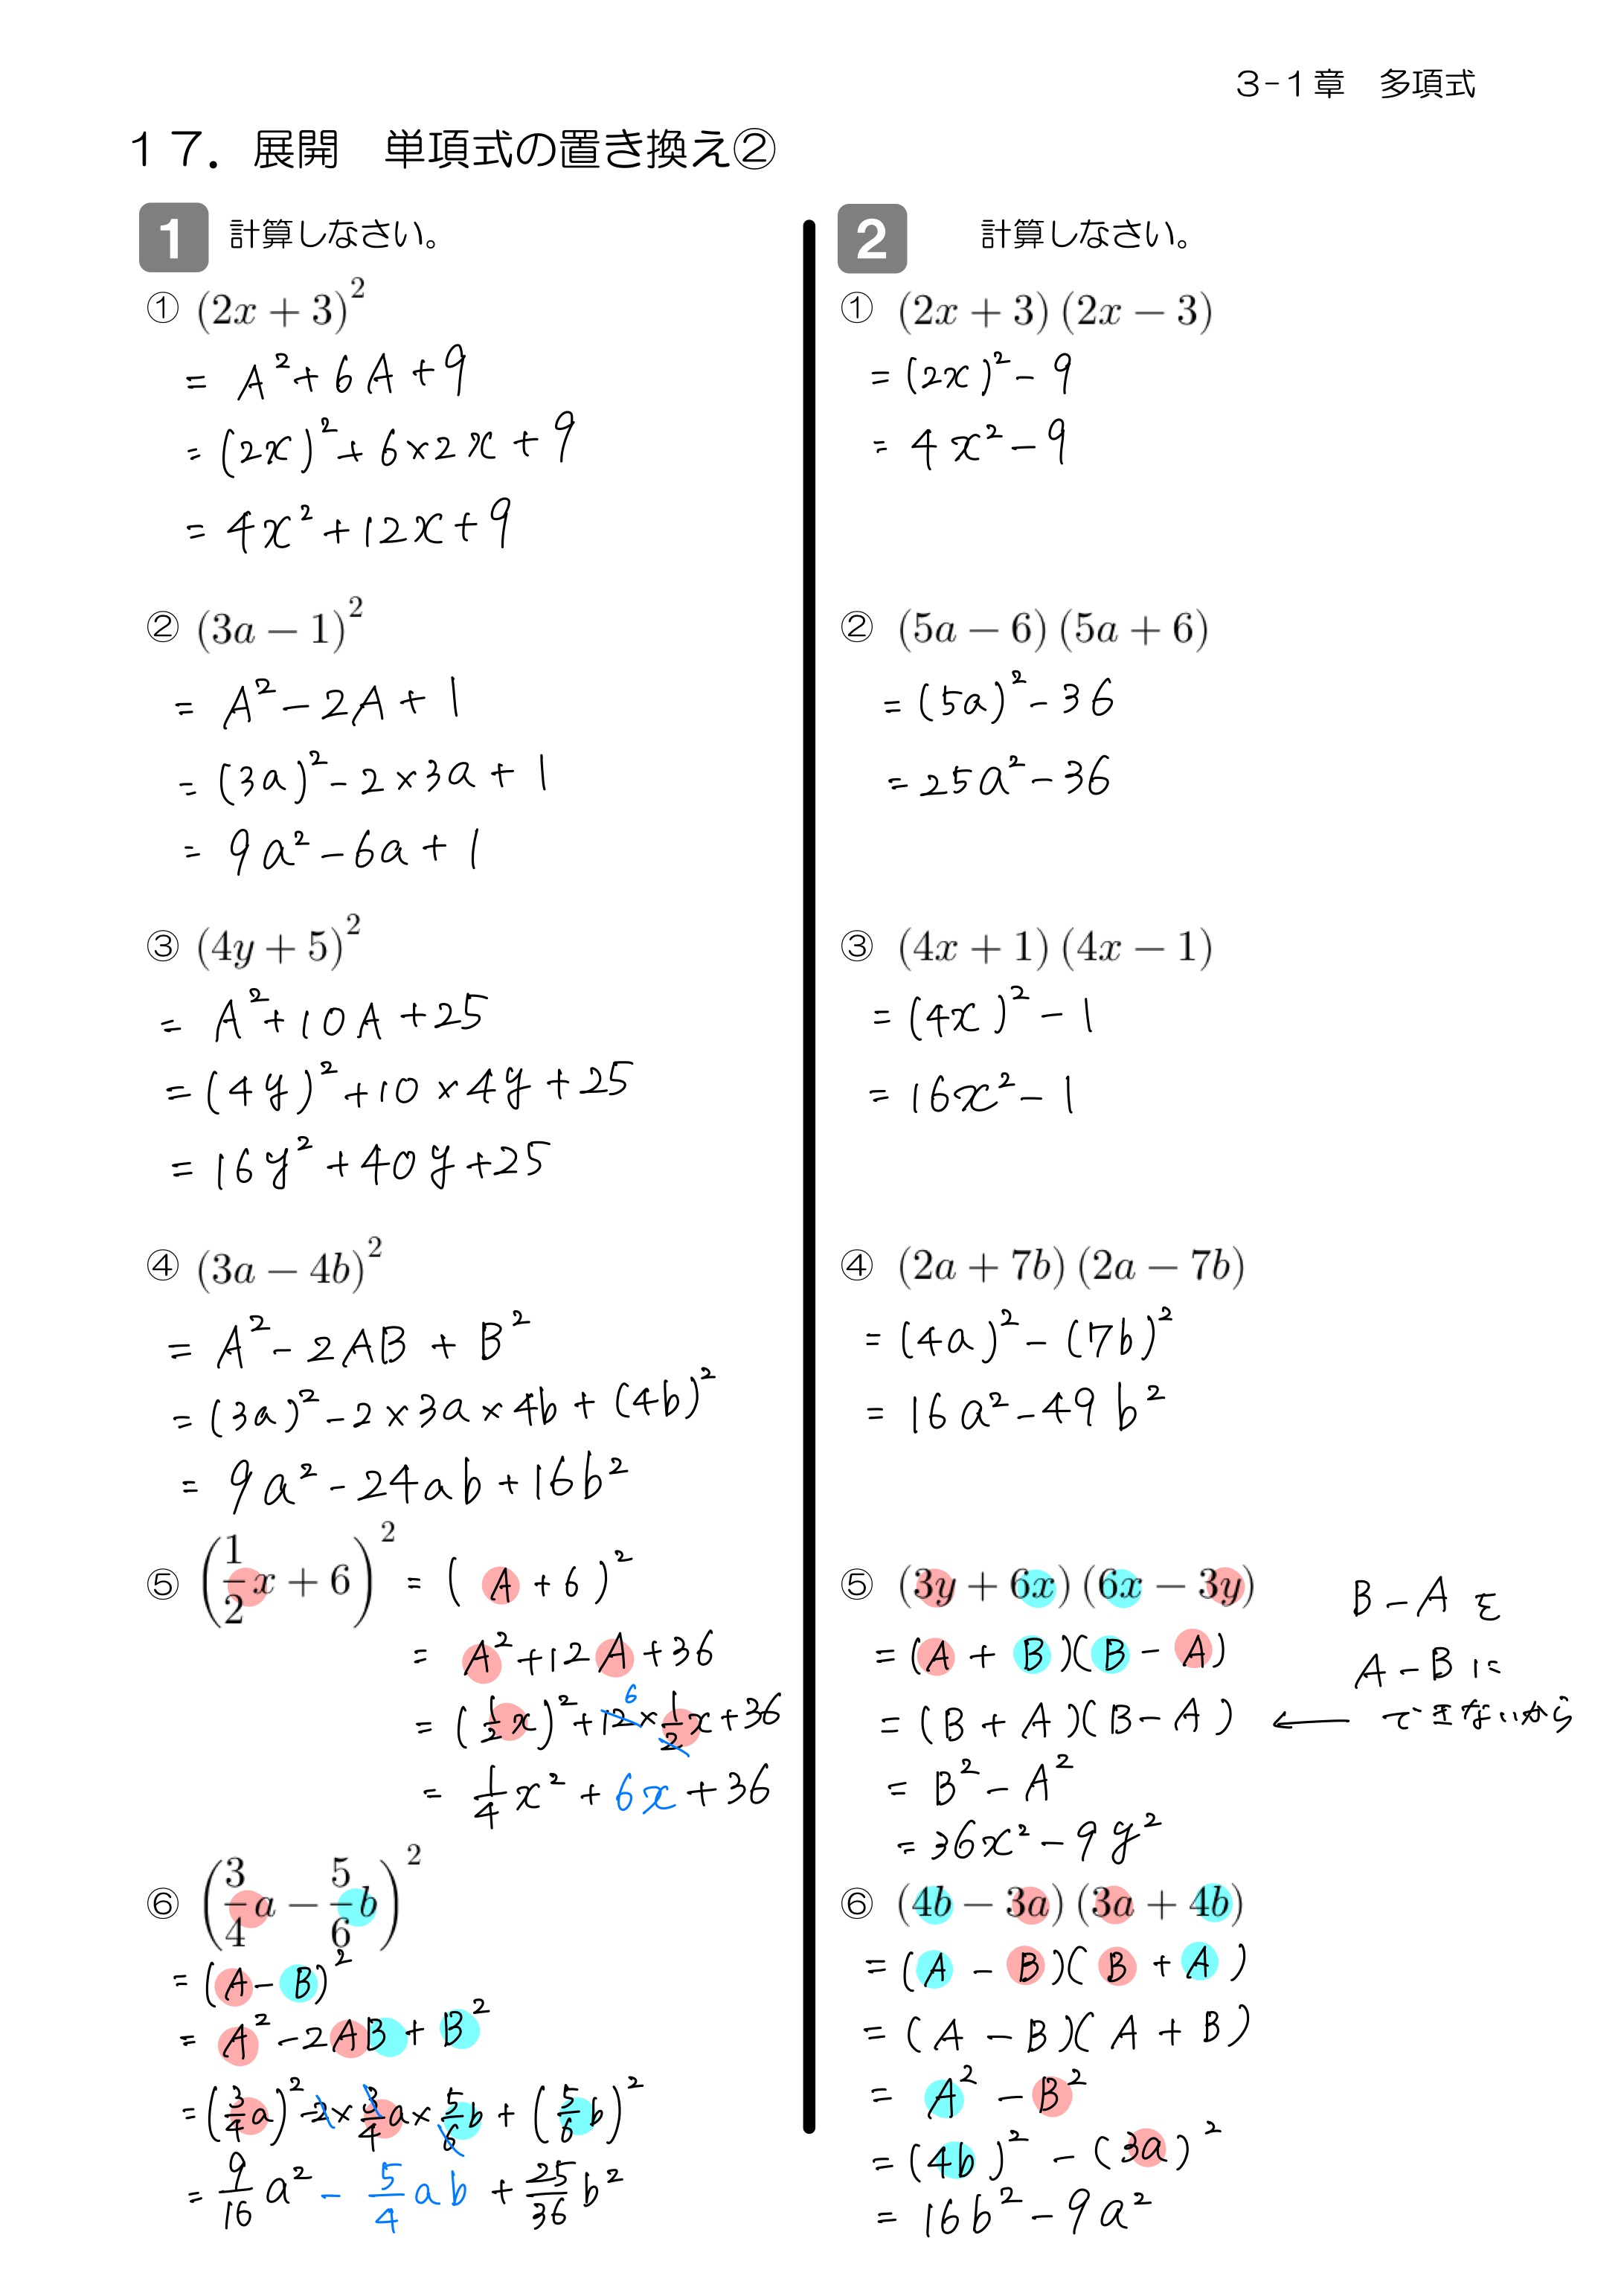 3-1章 多項式
17. 展開 単項式の置き換え②
1 計算しなさい。
① (2x + 3)²
= A² + 6A + 9
= (2x)² + 6×2x + 9
= 4x² + 12x + 9
② (3a − 1)²
= A² − 2A + 1
= (3a)² − 2×3a + 1
= 9a² − 6a + 1
③ (4y + 5)²
= A² + 10A + 25
= (4y)² + 10×4y + 25
= 16y² + 40y + 25
④ (3a − 4b)²
= A² − 2AB + B²
= (3a)² − 2×3a×4b + (4b)²
= 9a² − 24ab + 16b²
⑤ (1/2 x + 6)² = (A + 6)²
= A² + 12A + 36
6
= (1/2 x)² + 12×1/2 x + 36
= 1/4 x² + 6x + 36
⑥ (3/4 a − 5/6 b)²
= (A − B)²
= A² − 2AB + B²
= (3/4 a)² − 2×3/4 a×5/6 b + (5/6 b)²
= 9/16 a² − 5/4 ab + 25/36 b²
2 計算しなさい。
① (2x + 3)(2x − 3)
= (2x)² − 9
= 4x² − 9
② (5a − 6)(5a + 6)
= (5a)² − 36
= 25a² − 36
③ (4x + 1)(4x − 1)
= (4x)² − 1
= 16x² − 1
④ (2a + 7b)(2a − 7b)
= (4a)² − (7b)²
= 16a² − 49b²
⑤ (3y + 6x)(6x − 3y)
= (A + B)(B − A)
= (B + A)(B − A) ←
B − A を
A − B に
できないから
= B² − A²
= 36x² − 9y²
⑥ (4b − 3a)(3a + 4b)
= (A − B)(B + A)
= (A − B)(A + B)
= A² − B²
= (4b)² − (3a)²
= 16b² − 9a²